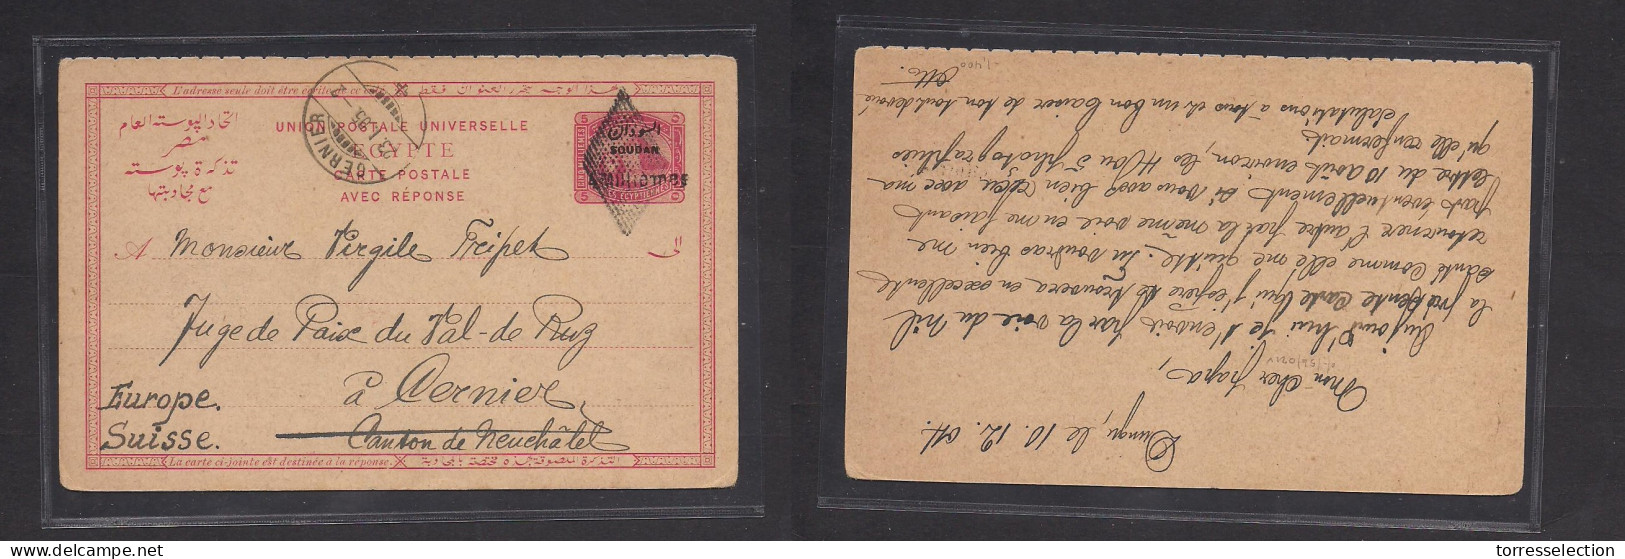 L'adresse seule doit être écrite de ce
هذا الوجه محرر العنوان فقط
اتحاد البوستة العام
مصر
تذكرة بوستة
مع مجاوبتها
UNION POSTALE UNIVERSELLE
EGYPTE
CARTE POSTALE
AVEC RÉPONSE
CERNIER
السودان
SOUDAN
5 5
A Monsieur Virgile Tripet
الى
Juge de Paix du Val-de Ruz
à Cernier
Europe.
Suisse.
Canton de Neuchâtel
La carte ci-jointe est destinée à la réponse.
le 10. 12. 04.
Mon cher papa,
Aujourd'hui je t'envoie par la voie du Nil
la présente carte qui j'espère te trouvera en excellente
santé comme elle me quitte. Tu voudras bien me
retourner l'autre par la même voie en me faisant
part éventuellement si vous avez bien reçu avec ma
lettre du 10 août environ, les 4 ou 5 photographies
qu'elle renfermait.
Salutations à tous et un bon baiser de ton tout dévoué
1,400
torresselection